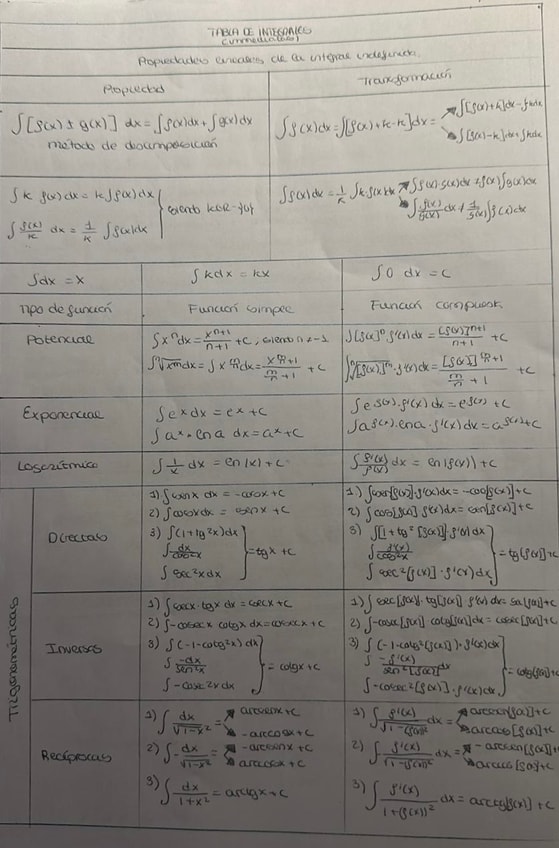 TABLA DE INTEGRALES
(inmediatas)
Propiedades lineales de la integral indefinida.
Propiedad
Transformación
∫[f(x) ± g(x)] dx = ∫f(x)dx + ∫g(x)dx
método de descomposición
∫f(x)dx = ∫[f(x)+k-k]dx =
∫[f(x)+k]dx - ∫kdx
∫[f(x)-k]dx + ∫kdx
∫k f(x) dx = k∫f(x)dx
∫f(x)/k dx = 1/k ∫f(x)dx
siendo k∈R-{0}
∫f(x)dx = 1/k ∫k·f(x)dx
∫dx = x
∫kdx = kx
∫0 dx = C
Tipo de función
Función simple
Función compuest.
Potencial
∫xⁿdx = xⁿ⁺¹/n+1 + C, siendo n ≠ -1
∫[f(x)]ⁿ·f'(x)dx = [f(x)]ⁿ⁺¹/n+1 + C
∫ⁿ√xᵐ dx = ∫x^(m/n) dx = x^(m/n+1)/(m/n + 1) + C
∫ⁿ√[f(x)]ᵐ·f'(x)dx = [f(x)]^(m/n+1)/(m/n + 1) + C
Exponencial
∫eˣdx = eˣ + C
∫e^f(x)·f'(x)dx = e^f(x) + C
∫aˣ·lna dx = aˣ + C
∫a^f(x)·lna·f'(x)dx = a^f(x) + C
Logarítmico
∫1/x dx = ln|x| + C
∫f'(x)/f(x) dx = ln|f(x)| + C
Trigonométricas
Directas
1) ∫senx dx = -cosx + C
2) ∫cosxdx = senx + C
3) ∫(1+tg²x)dx
∫dx/cos²x
∫sec²xdx
= tgx + C
1) ∫sen[f(x)]·f'(x)dx = -cos[f(x)] + C
2) ∫cos[f(x)]·f'(x)dx = sen[f(x)] + C
3) ∫[1+tg²[f(x)]]·f'(x)dx
∫f'(x)/cos²x
∫sec²[f(x)]·f'(x)dx
= tg[f(x)] + C
Inversas
1) ∫secx·tgx dx = secx + C
2) ∫-cosecx cotgx dx = cosecx + C
3) ∫(-1-cotg²x)dx
∫-dx/sen²x
∫-cosec²xdx
= cotgx + C
1) ∫sec[f(x)]·tg[f(x)]·f'(x)dx = sec[f(x)] + C
2) ∫-cosec[f(x)]·cotg[f(x)]dx = cosec[f(x)] + C
3) ∫(-1-cotg²[f(x)])·f'(x)dx
∫-f'(x)/sen²[f(x)] dx
∫-cosec²[f(x)]·f'(x)dx
= cotg[f(x)] + C
Recíprocas
1) ∫dx/√1-x² =
arcsenx + C
-arccosx + C
2) ∫-dx/√1-x² =
-arcsenx + C
arccosx + C
3) ∫dx/1+x² = arctgx + C
1) ∫f'(x)/√1-(f(x))² dx =
arcsen[f(x)] + C
arccos[f(x)] + C
2) ∫f'(x)/√1-(f(x))² dx =
-arcsen[f(x)] + C
arccos[f(x)] + C
3) ∫f'(x)/1+(f(x))² dx = arctg[f(x)] + C